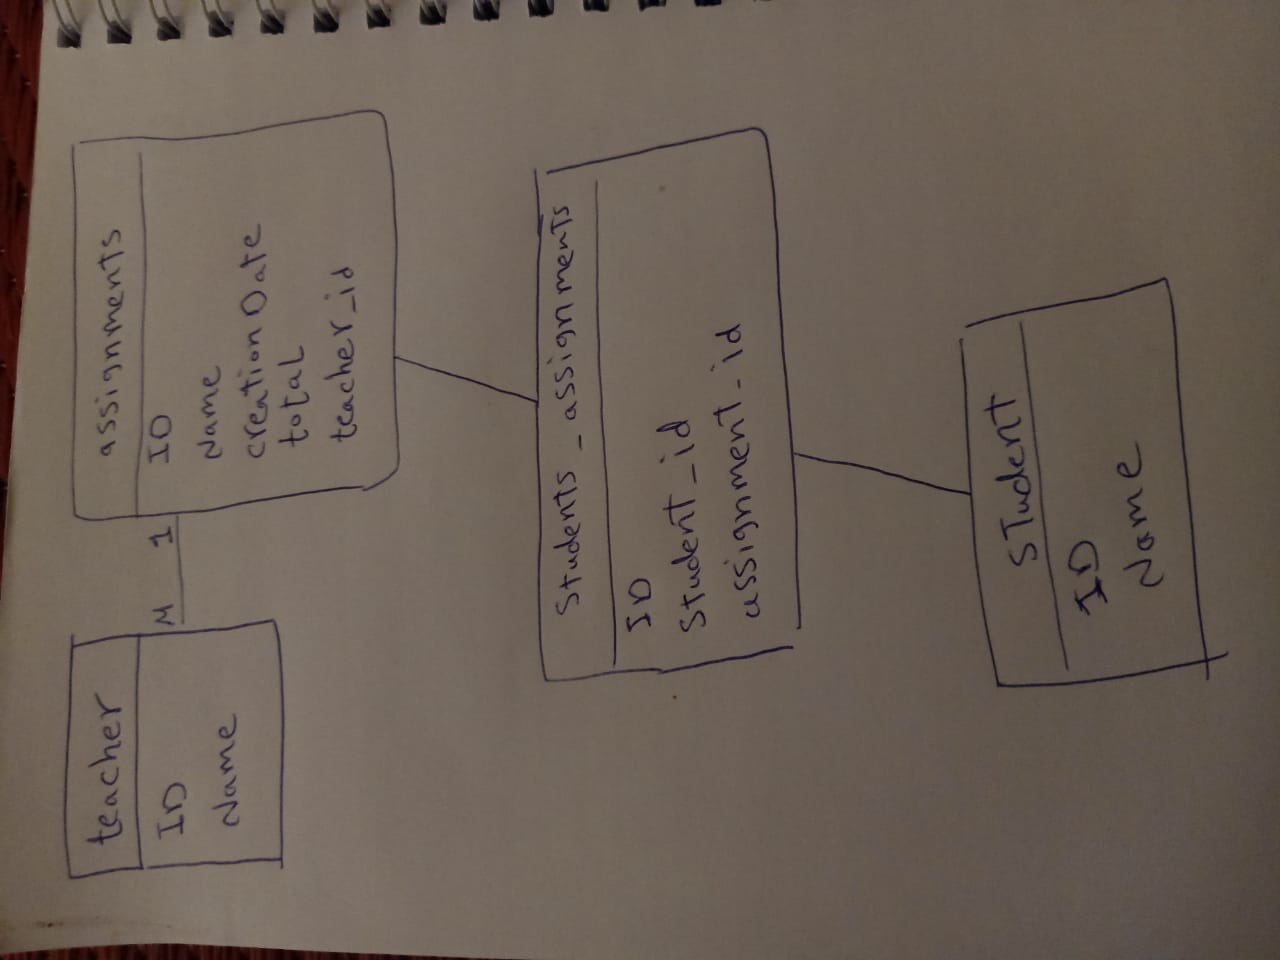 teacher
ID
Name
M 1
assignments
ID
Name
creationDate
total
teacher_id
Students_assignments
ID
Student_id
assignment_id
STudent
ID
Name